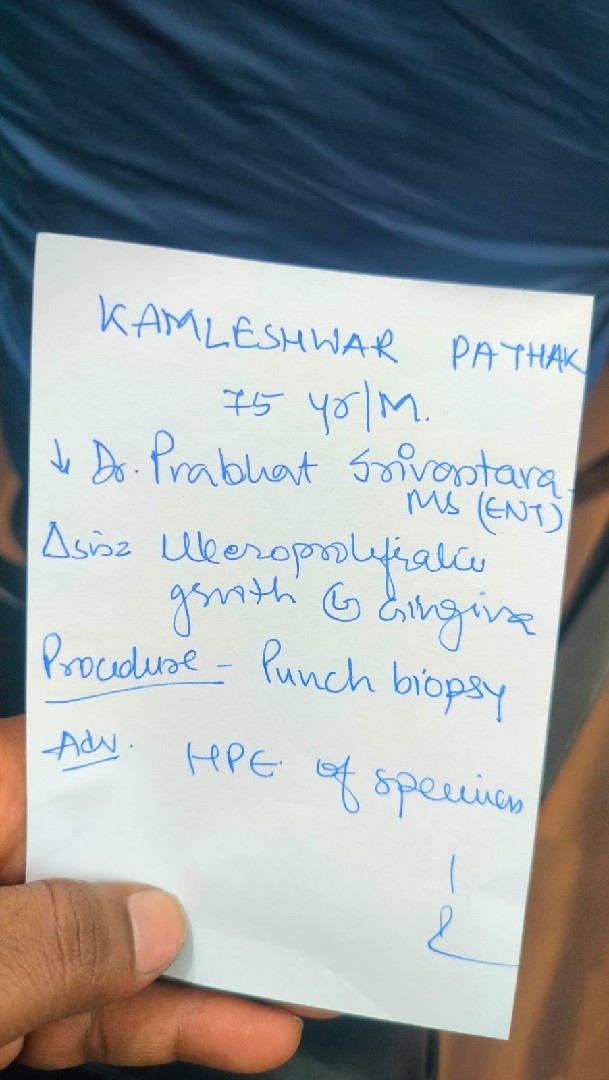 KAMLESHWAR PATHAK
75 yr/M.
↓ Dr. Prabhat Srivastava
MS (ENT)
Δsis Ulceroproliferative
growth Ⓛ Gingiva
Procedure - Punch biopsy
Adv. HPE of specimen